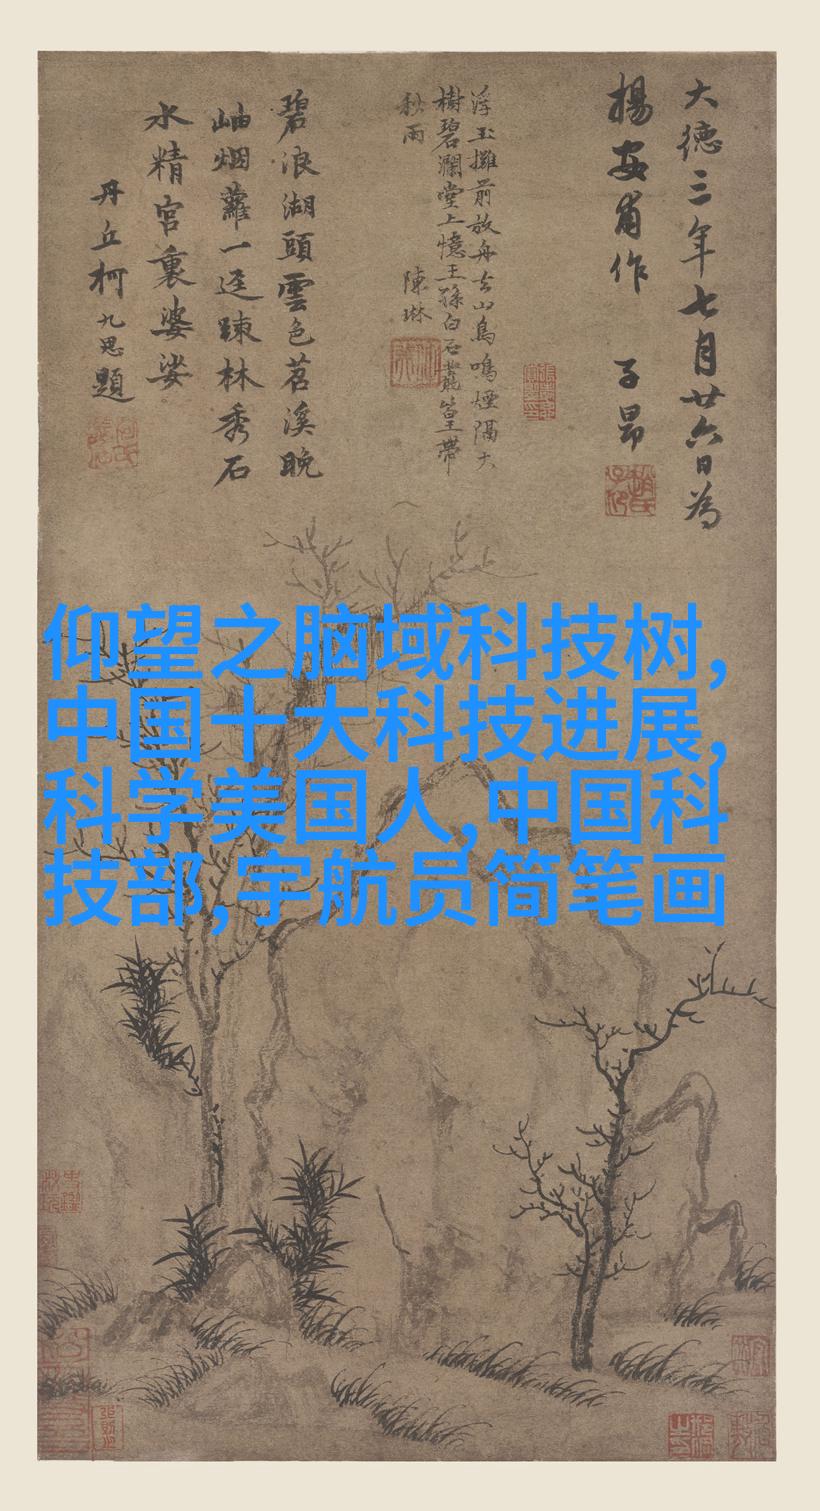 大德三年七月廿六日為
楊安甫作 子昂
浮玉攤前放舟去山鳥鳴煙隔大
樹碧瀾堂上憶王孫白石叢篁帶
秋雨 陳琳
碧浪湖頭雲色苕溪晚
岫烟蘿一逕踈林秀石
水精宮裏婆娑
丹丘柯九思題
仰望之脑域科技树,
中国十大科技进展,
科学美国人,中国科
技部,宇航员简笔画